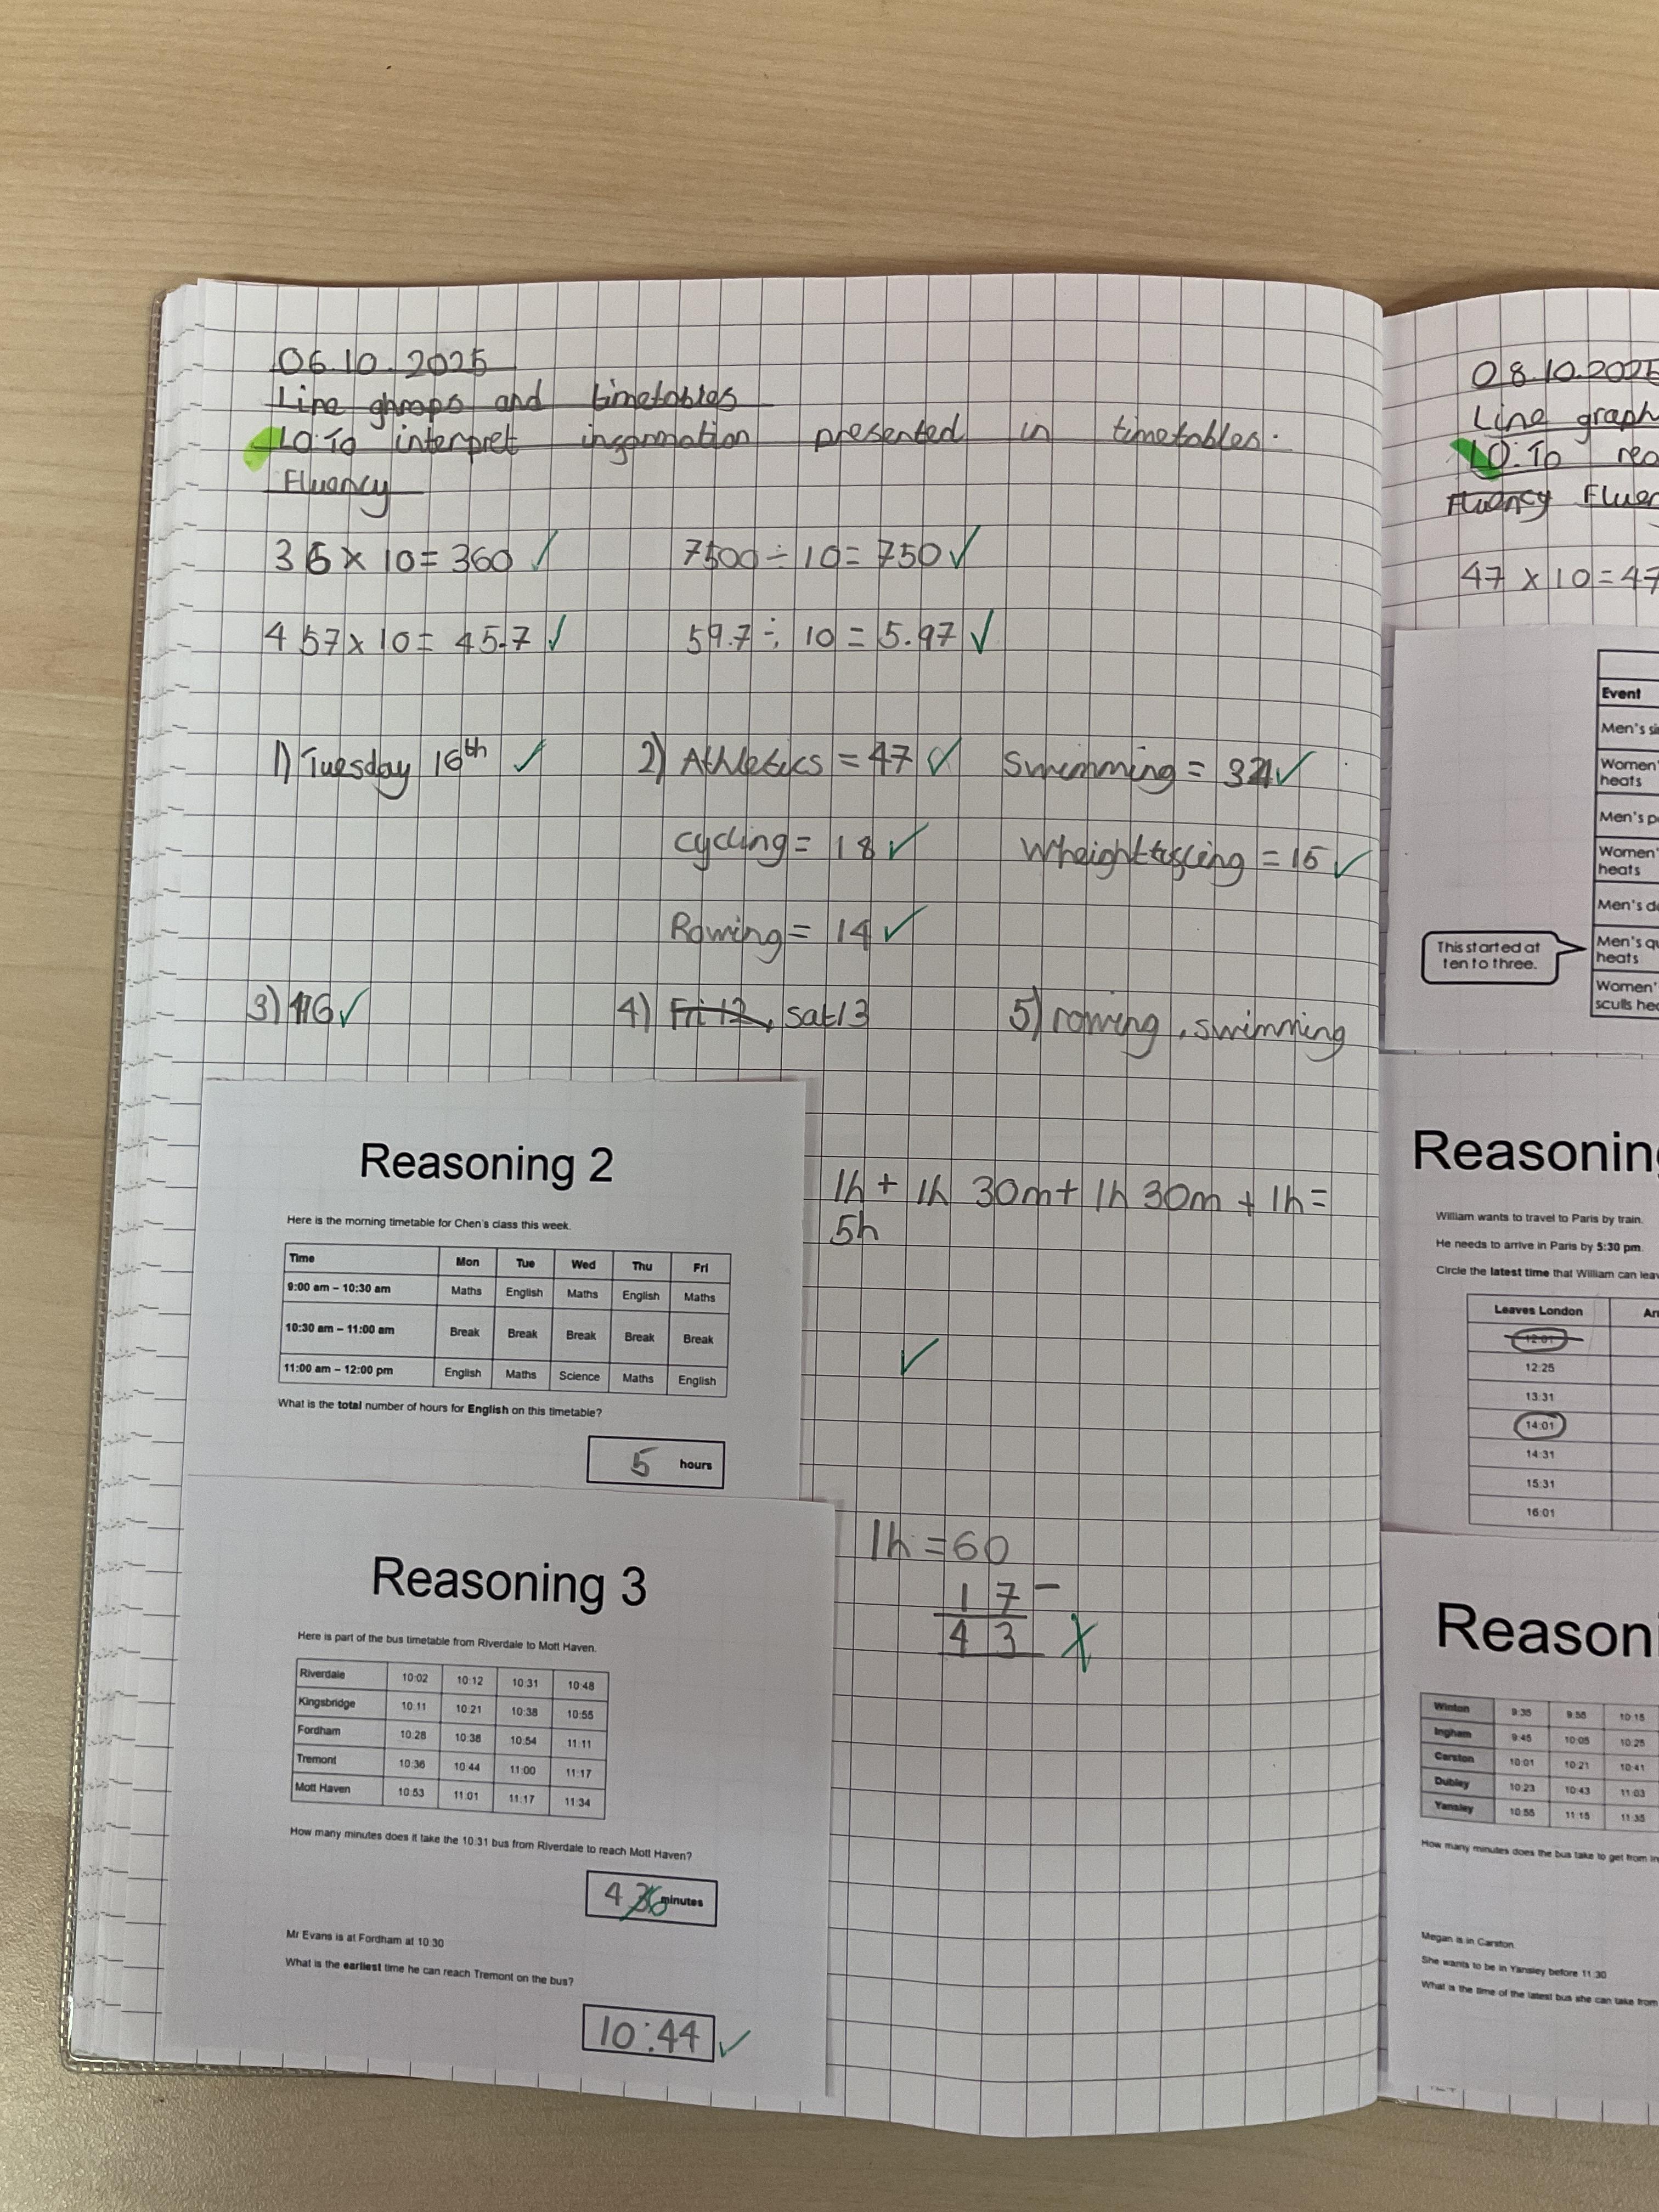 06.10.2025
Line ghraps and timetables
LO:To interpret insormation presented in timetables.
Fluency
36 x 10 = 360 ✓
7500 ÷ 10 = 750 ✓
457 x 10 = 45.7 ✓
59.7 ÷ 10 = 5.97 ✓
1) Tuesday 16th ✓
2) Athletics = 47 ✓ Swimming = 34 ✓
cycling = 18 ✓ = 15 ✓
Rowing = 14 ✓
3) 116 ✓
4) Fri 12, sat 13
5) rowing, swimming
Reasoning 2
Here is the morning timetable for Chen's class this week.
Time Mon Tue Wed Thu Fri
9:00 am – 10:30 am Maths English Maths English Maths
10:30 am – 11:00 am Break Break Break Break Break
11:00 am – 12:00 pm English Maths Science Maths English
What is the total number of hours for English on this timetable?
5 hours
1h + 1h 30m + 1h 30m + 1h =
5h
✓
Reasoning 3
Here is part of the bus timetable from Riverdale to Mott Haven.
Riverdale 10:02 10:12 10:31 10:48
Kingsbridge 10:11 10:21 10:38 10:55
Fordham 10:28 10:38 10:54 11:11
Tremont 10:36 10:44 11:00 11:17
Mott Haven 10:53 11:01 11:17 11:34
How many minutes does it take the 10:31 bus from Riverdale to reach Mott Haven?
minutes
Mr Evans is at Fordham at 10:30
What is the earliest time he can reach Tremont on the bus?
10:44 ✓
1h = 60
17 –
43 X
08.10.2025
Line graph
LO:To rea
Fluency Fluen
47 x 10 = 47
Event
Men's si
Women'
heats
Men's p
Women'
heats
Men's d
Men's qu
heats
Women'
sculls hea
This started at
ten to three.
Reasoning
William wants to travel to Paris by train.
He needs to arrive in Paris by 5:30 pm.
Circle the latest time that William can leav
Leaves London Ar
12:01
12:25
13:31
14:01
14:31
15:31
16:01
Reasoni
Winton 9:35 9:55 10:15
Ingham 9:45 10:05 10:25
Carston 10:01 10:21 10:41
Dubley 10:23 10:43 11:03
Yansley 10:55 11:15 11:35
How many minutes does the bus take to get from In
Megan is in Carston
She wants to be in Yansley before 11:30
What is the time of the latest bus she can take from